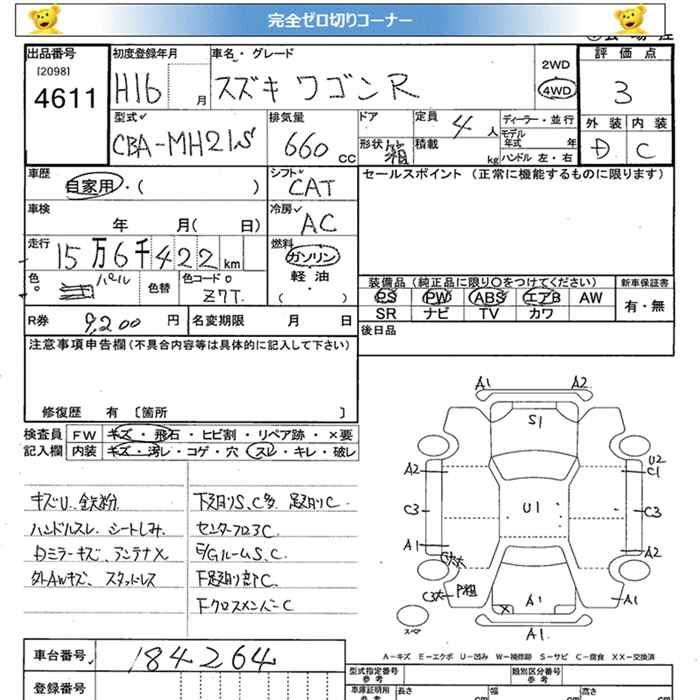 完全ゼロ切りコーナー
出品番号
[2098]
4611
初度登録年月
H16 月
車名・グレード
スズキ ワゴンR
2WD
4WD
評価点
3
外装 内装
D C
型式
CBA-MH21S
排気量
660 cc
ドア
形状 箱
定員 4 人
積載 kg
ディーラー・並行
モデル年式 年
ハンドル 左・右
車歴
自家用・( )
シフト
CAT
セールスポイント (正常に機能するものに限ります)
車検
年 月( 日)
冷房
AC
走行
15万6千422 km
燃料
ガソリン
軽・油
( )
色
パール
色替
色コード
Z7T
装備品 (純正品に限り○をつけてください)
PS PW ABS エアB AW
SR ナビ TV カワ
新車保証書
有・無
R券 9,200 円
名変期限 月 日
後日品
注意事項申告欄 (不具合内容等は具体的に記入して下さい)
修復歴 有 〔箇所 〕
検査員記入欄
FW キズ・飛石・ヒビ割・リペア跡・×要
内装 キズ・汚レ・コゲ・穴 スレ・キレ・破レ
キズU 鉄粉
ハンドルスレ シートしみ
Dミラーキズ、アンテナX
外AWキズ、スタッドレス
下廻りS、C多 足廻りC
センターフロアC
E/GルームS、C
F足廻り部C
FクロスメンバーC
A1 A2
S1
U2
A2 C1
C3 U1 C3
A1 A2
C3大 P粗
X A1 A1
A1
スペア
A－キズ E－エクボ U－凹み W－補修跡 S－サビ C－腐食 XX－交換済
車台番号 184264
登録番号
型式指定番号
参考
類別区分番号
参考
車庫証明用
参考
長さ cm
幅 cm
高さ cm